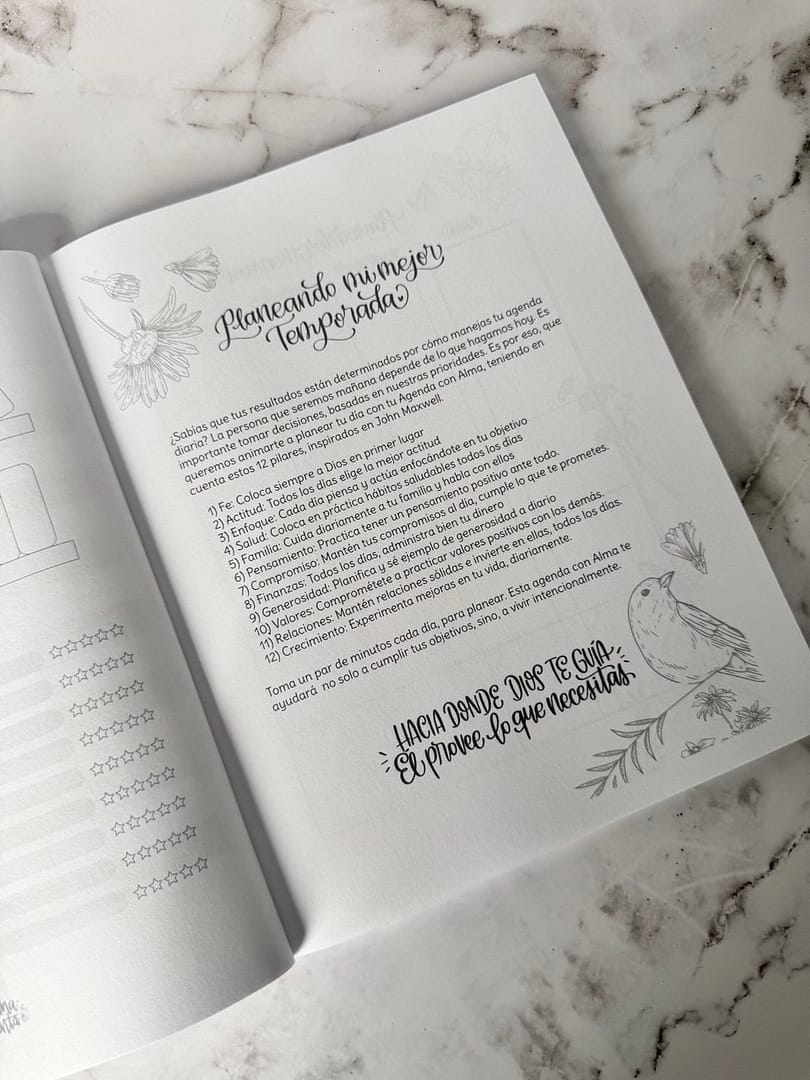 Planeando mi mejor
Temporada
¿Sabías que tus resultados están determinados por cómo manejas tu agenda
diaria? La persona que seremos mañana depende de lo que hagamos hoy. Es
importante tomar decisiones, basadas en nuestras prioridades. Es por eso, que
queremos animarte a planear tu día con tu Agenda con Alma, teniendo en
cuenta estos 12 pilares, inspirados en John Maxwell.
1) Fe: Coloca siempre a Dios en primer lugar
2) Actitud: Todos los días elige la mejor actitud
3) Enfoque: Cada día piensa y actúa enfocándote en tu objetivo
4) Salud: Coloca en práctica hábitos saludables todos los días
5) Familia: Cuida diariamente a tu familia y habla con ellos
6) Pensamiento: Practica tener un pensamiento positivo ante todo.
7) Compromiso: Mantén tus compromisos al día, cumple lo que te prometes.
8) Finanzas: Todos los días, administra bien tu dinero
9) Generosidad: Planifica y sé ejemplo de generosidad a diario
10) Valores: Comprométete a practicar valores positivos con los demás.
11) Relaciones: Mantén relaciones sólidas e invierte en ellas, todos los días.
12) Crecimiento: Experimenta mejoras en tu vida, diariamente.
Toma un par de minutos cada día, para planear. Esta agenda con Alma te
ayudará no solo a cumplir tus objetivos, sino, a vivir intencionalmente.
HACIA DONDE DIOS TE GUÍA
Él provee lo que necesitas